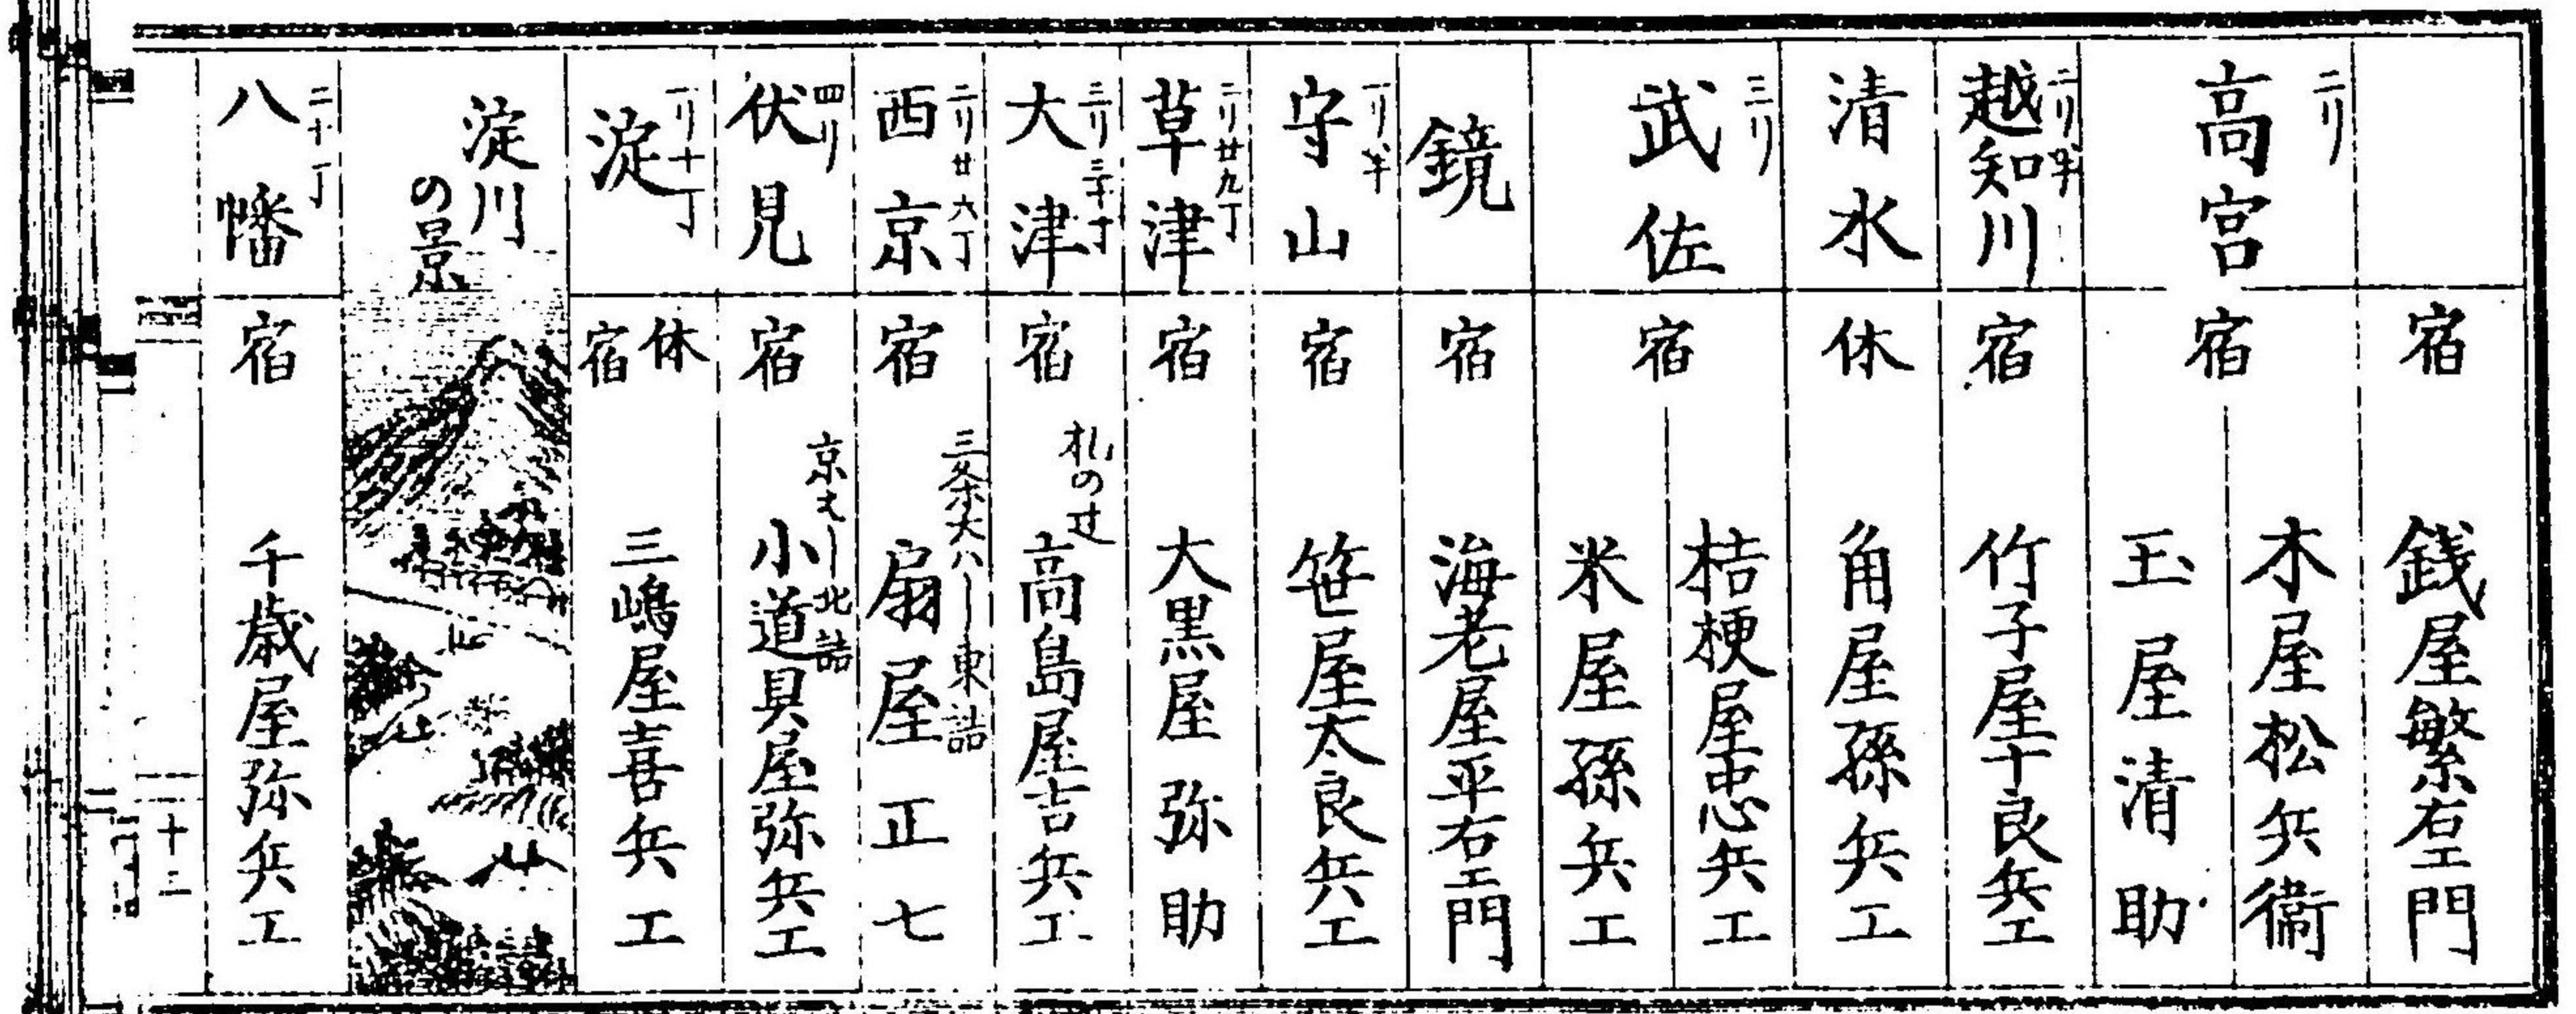 宿 銭屋繁右エ門
二リ 高宮 宿 木屋松兵衞
玉屋清助
二リ半 越知川 宿 竹子屋十良兵エ
清水 休 角屋孫兵エ
三リ 武佐 宿 桔梗屋忠兵エ
米屋孫兵エ
鏡 宿 海老屋平右エ門
一リ半 守山 宿 笹屋太良兵エ
二リ廿九丁 草津 宿 大黒屋弥助
三リ三十丁 大津 宿 札の辻 高島屋吉兵エ
二リ廿六丁 西京 宿 三条大ハシ東詰 扇屋正七
四リ 伏見 宿 京はし北詰 小道具屋弥兵エ
一リ十丁 淀 休宿 三嶋屋喜兵エ
淀川
の景
二十丁 八幡 宿 千歳屋弥兵エ
十三